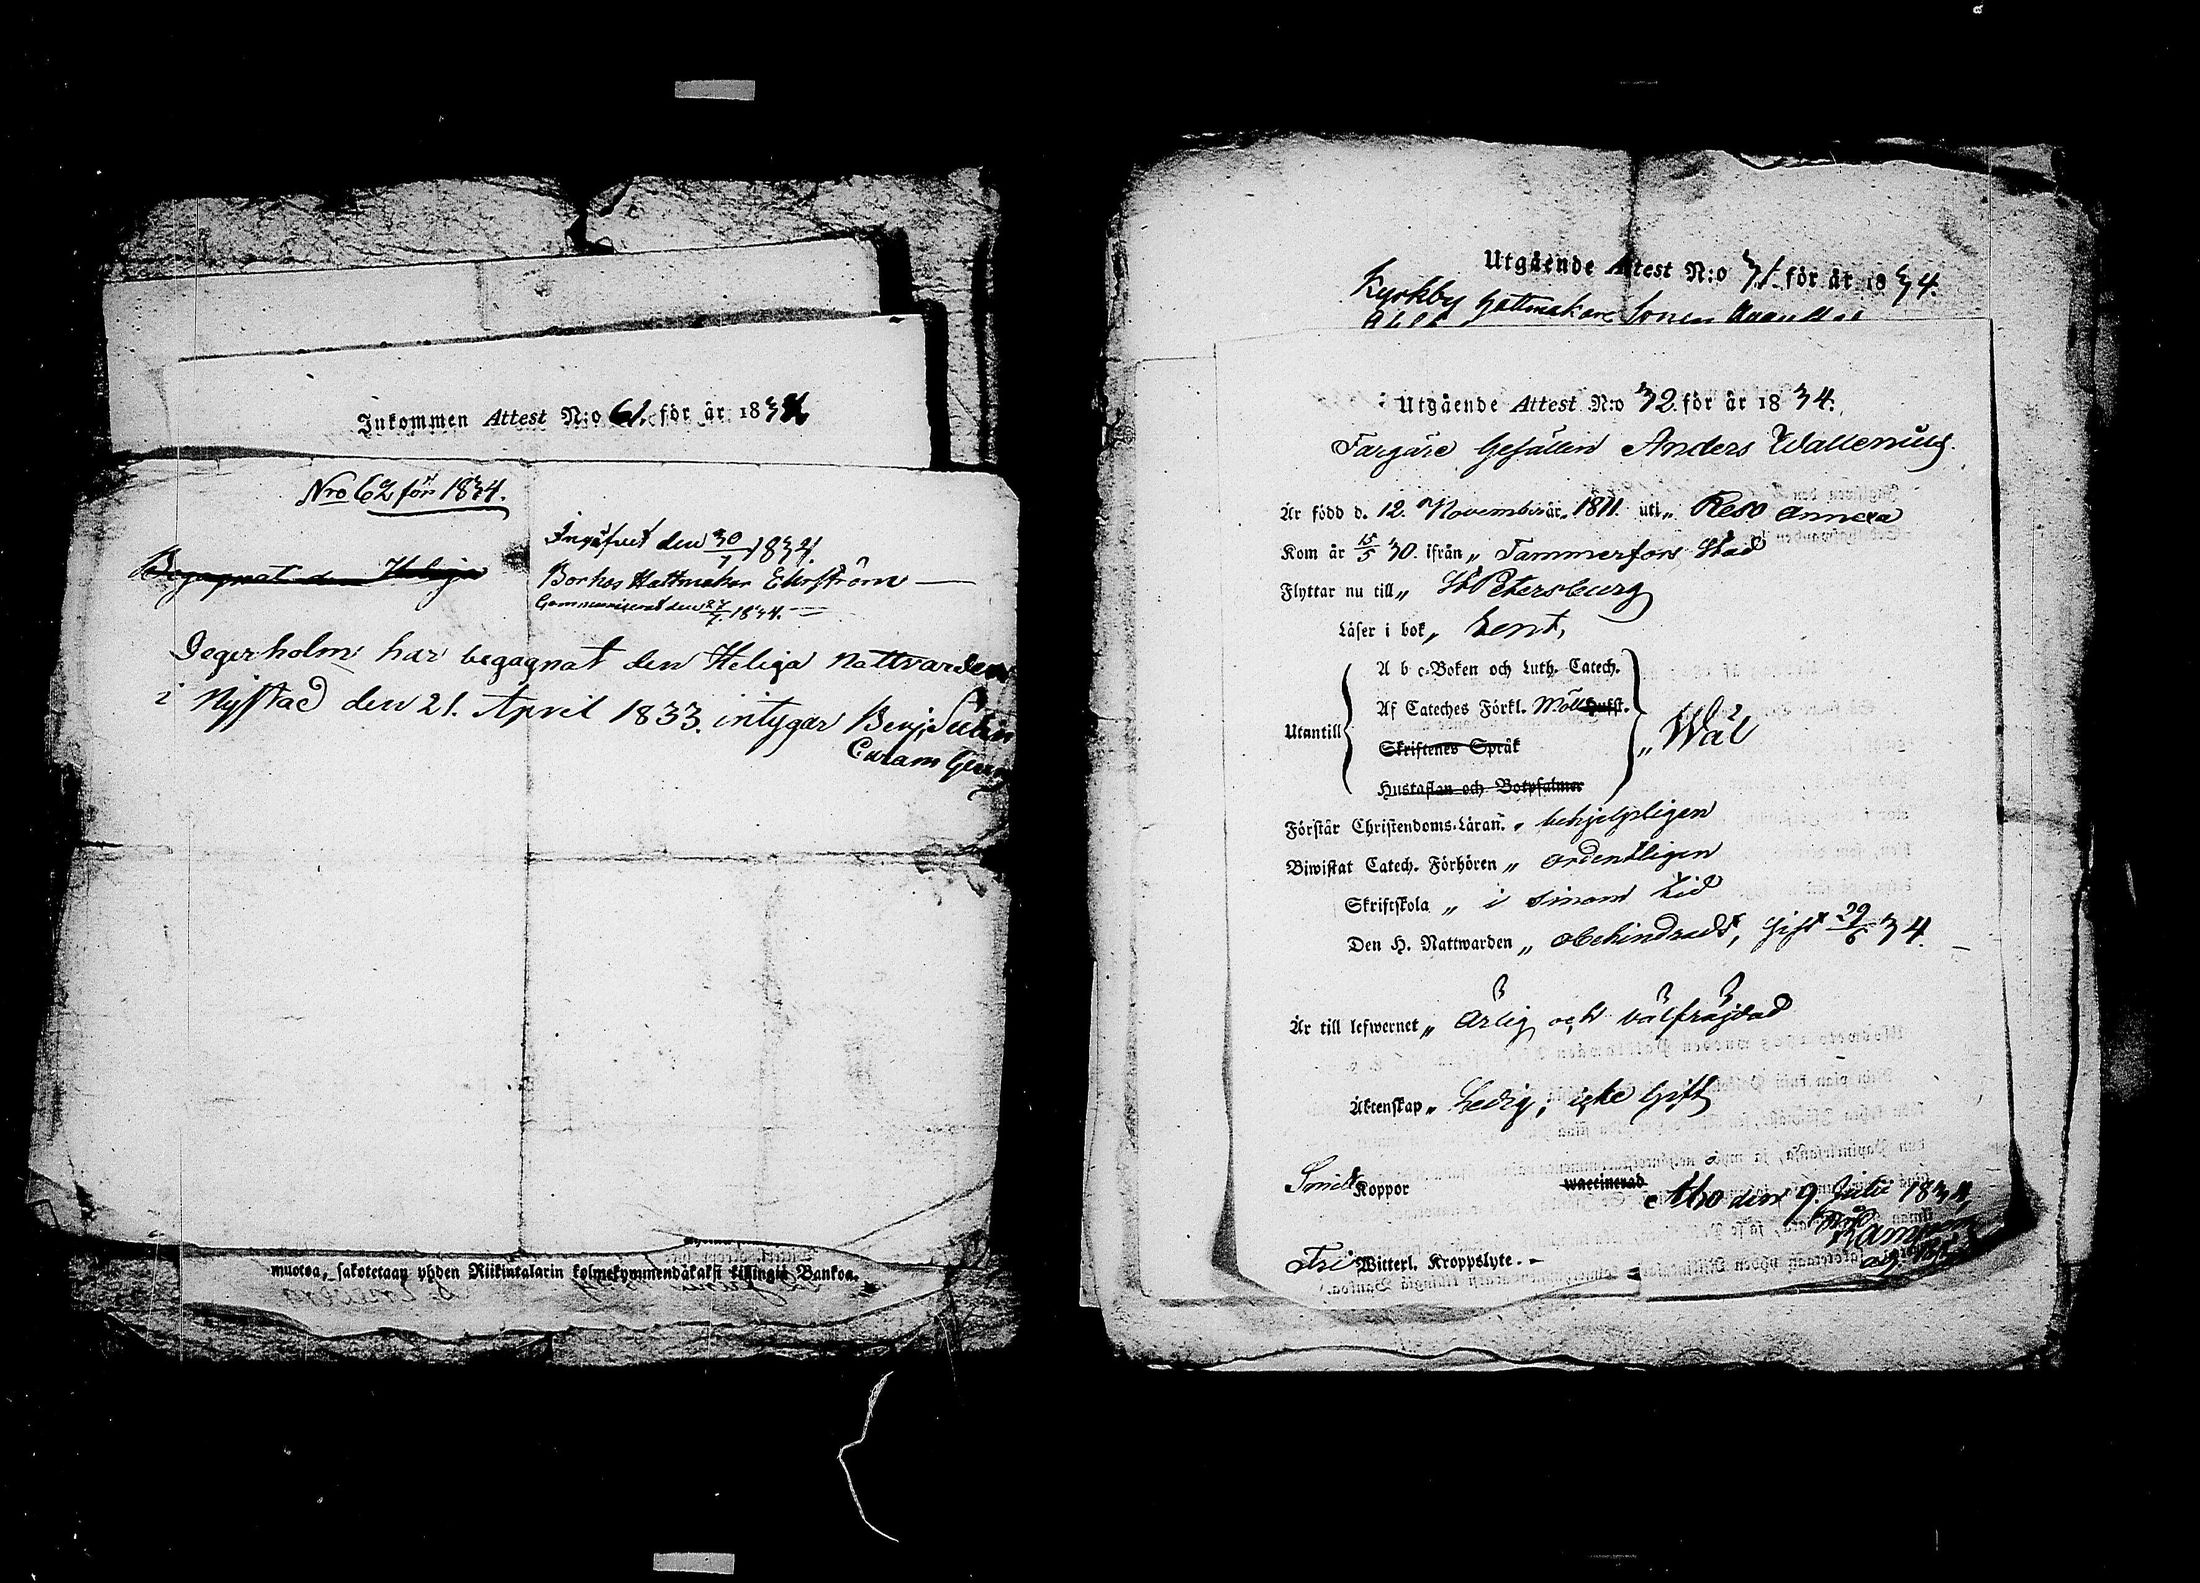 Inkommen Attest N:o 61. för år 1834
Nro 62 för 1834.
Ingifvet den 30/7 1834.
Begagnat den Heliga
Borhos Hattmakar Ekström
Communicerat den 27/7 1834.
Degerholm har begagnat den Heliga Nattvarden
i Nystad den 21. April 1833. intygar Benj.
muotoa, sakotetaan yhden Riikintalarin kolmekymmendäkaksi killingiä Bankoa.
Utgående Attest N:o 31. för år 1834.
Kyrkby Hattmakare Sonen
Utgående Attest N:o 32. för år 1834.
Färgare Gesällen Anders Wallenius.
Är född d. 12. Novemb: år „ 1811. uti „ Reso annexa
Kom år 15/5 30. ifrån „ Tammerfors Stad
Flyttar nu till „ St Petersburg
Läser i bok „ Rent,
A b c-Boken och Luth. Catech.
Af Cateches Förkl. Möll.
Utantill „ Wäl
Skriftenes Språk
Hustaflan och Botpsalmer
Förstår Christendoms-Läran. „ behjelpligen
Biwistat Catech. Förhören „ ordentligen
Skriftskola „ i sinom tid
Den H. Nattwarden „ obehindradt, sist 29/6 34.
Är till lefwernet „ ärlig och välfräjdad
Äktenskap „ Ledig, icke Gift
Smitt Koppor waccinerad
Åbo den 9. Julii 1834,
Fri Witterl. Kroppslyte. -